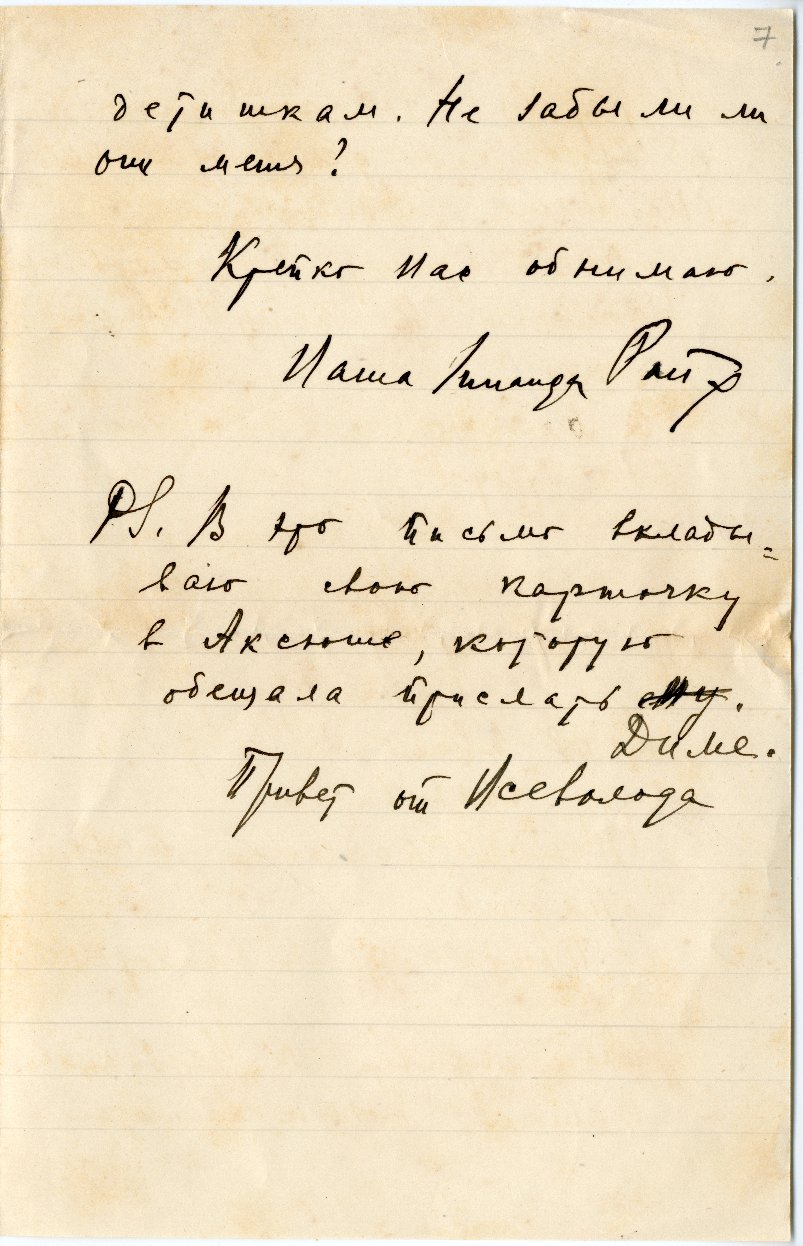 7
детишкам. Не забыли ли
они меня?
Крепко Вас обнимаю.
Ваша Зинаида Райх
PS. В это письмо вклады=
ваю свою карточку
в Аксюше, которую
обещала прислать ему.
Диме.
Привет от Всеволода